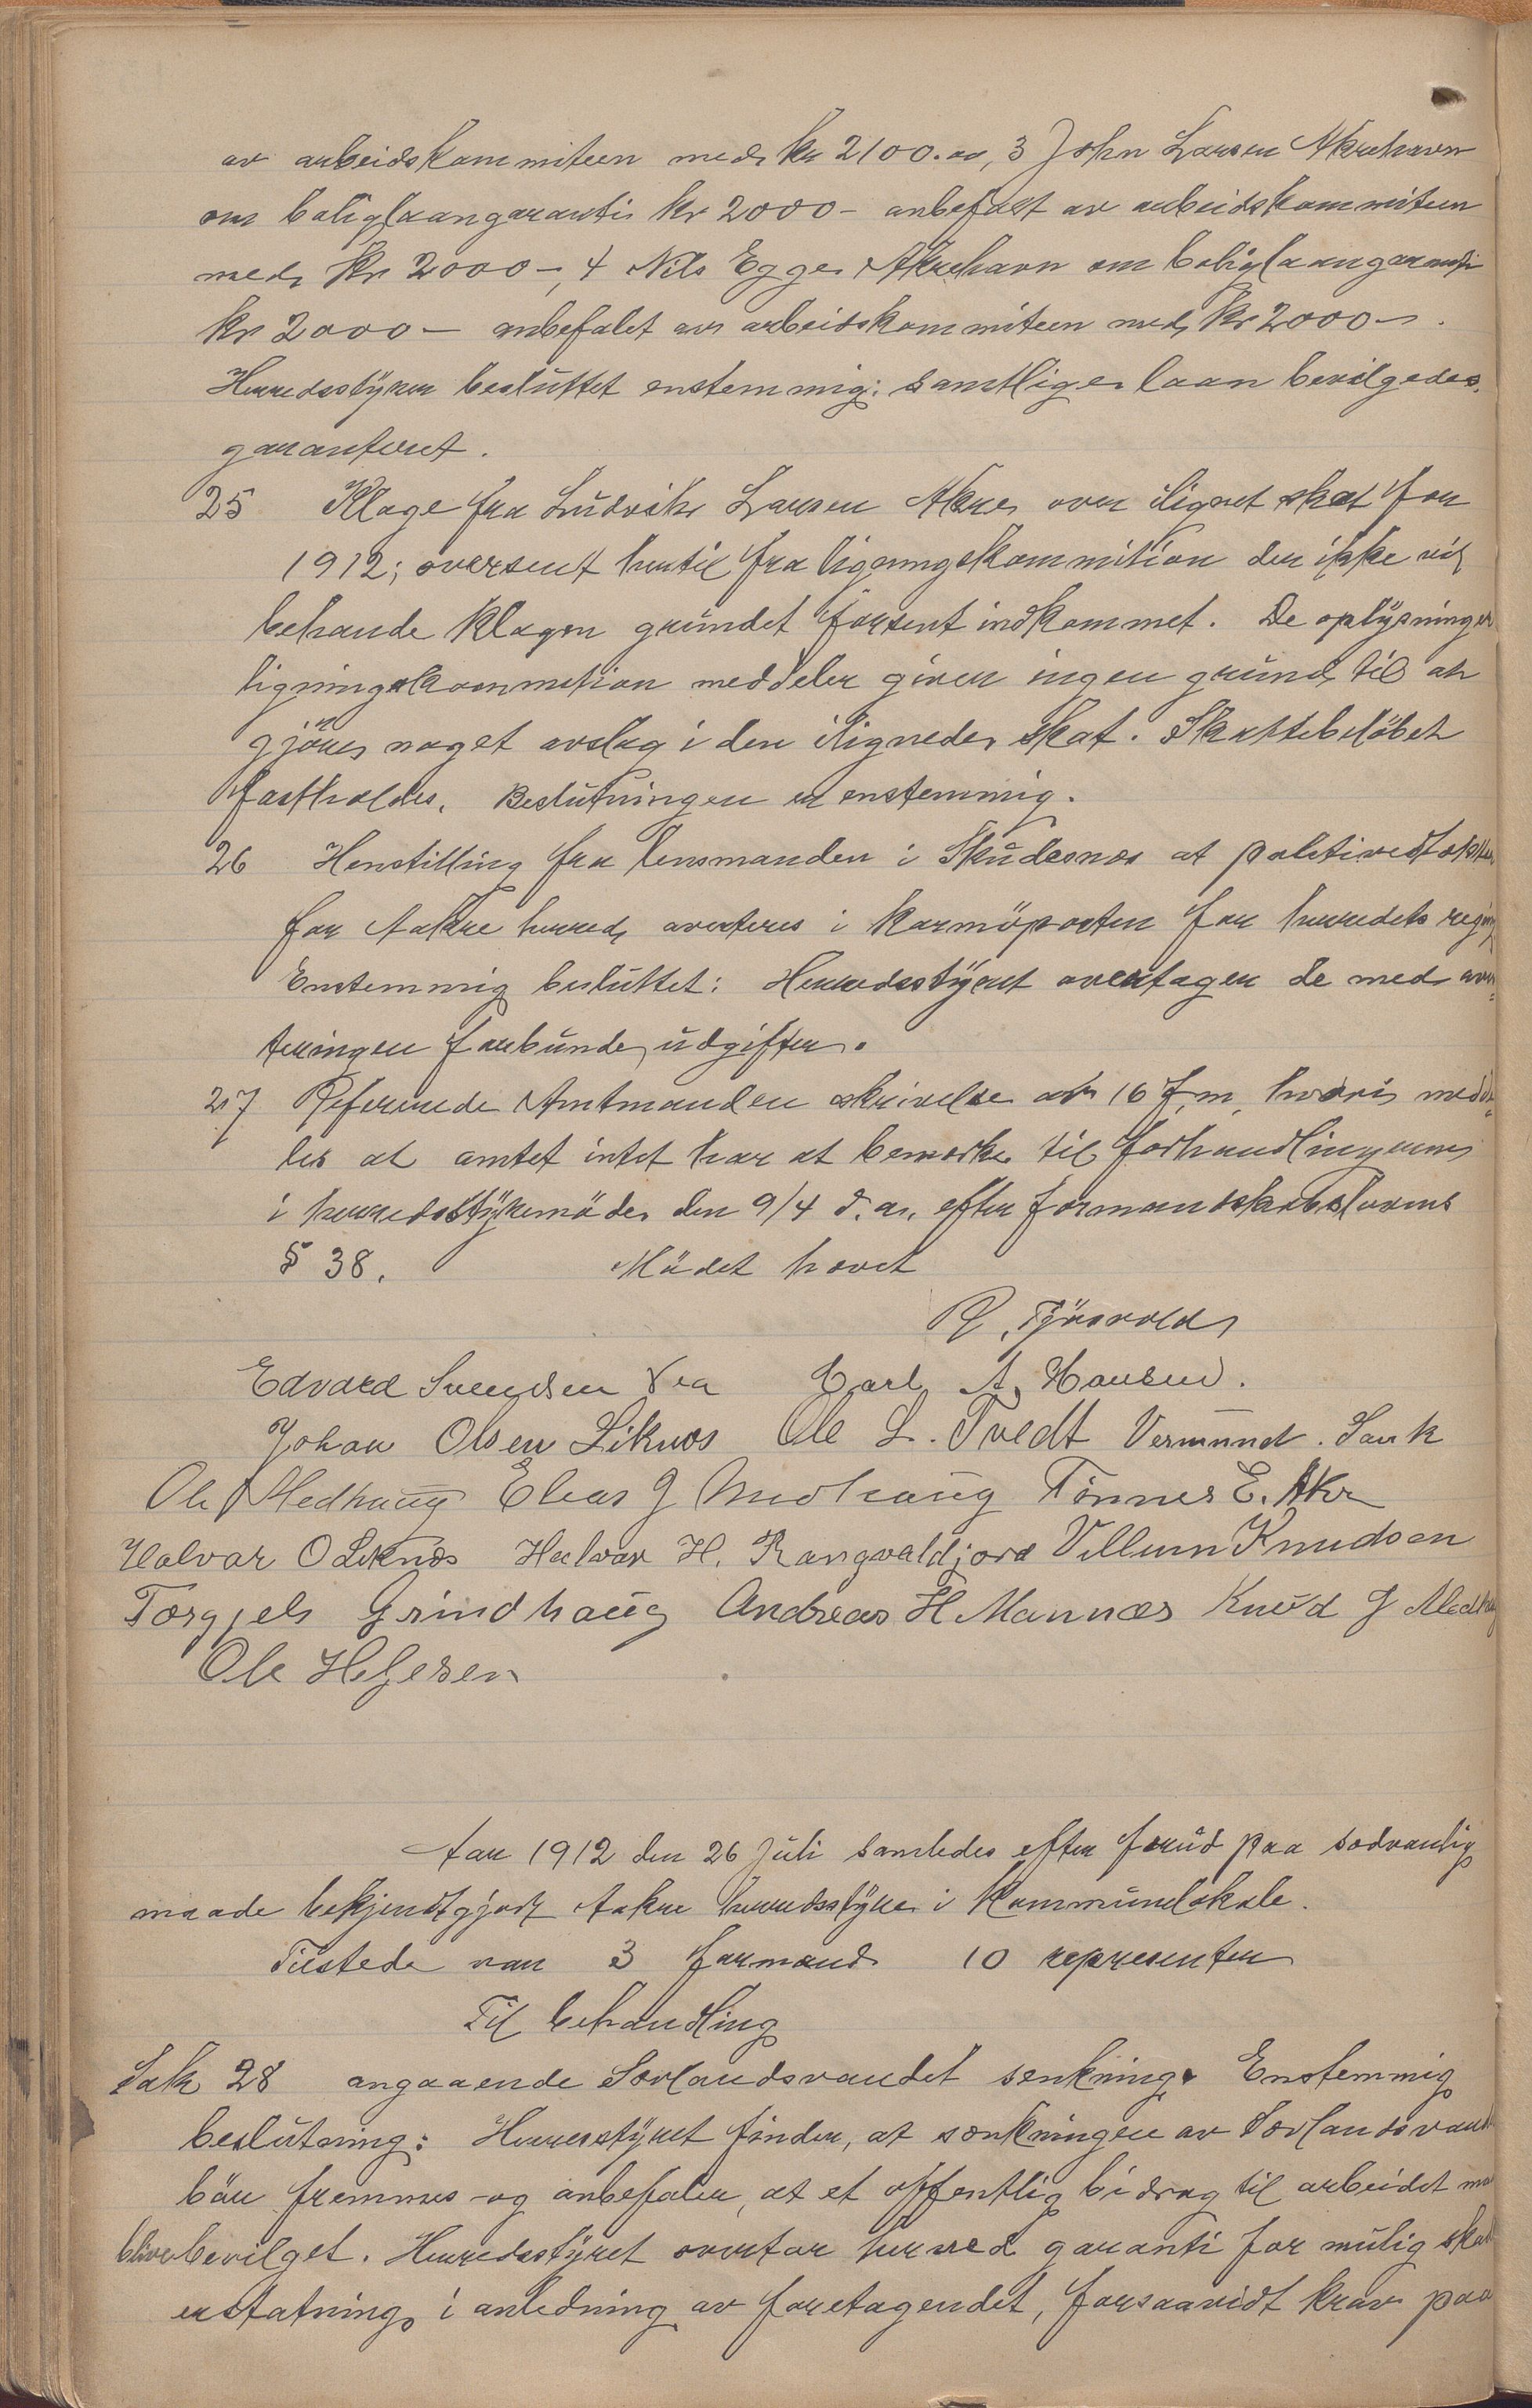 av arbeidskommiteen med kr 2100.00, 3 John Larsen Akrehavn
om boliglaangaranti kr 2000- anbefalt av arbeidskommiteen
med kr 2000-, 4 Nils Egge Akrehavn om boliglaangaranti
kr 2000- anbefalet av arbeidskommiteen med kr 2000-.
Herredsstyren besluttet enstemmig: samtlige laan bevilgedes
garanteret.
25 Klage fra Ludvik Larsen Akre over ilignet skat for
1912; oversent hertil fra ligningskommition der ikke vil
behande klagen grundet forsent indkommet. De oplysninger
ligningskommition meddeler giver ingen grund til at
gjöre noget avslag i den ilignede skat. Skattebelöbet
fastholdes. Beslutningen er enstemmig.
26 Henstilling fra lensmanden i Skudesnes at politivedtækter
for Aakre herred averteres i Karmöposten for herredets regning
Enstemmig besluttet: Herredsstyret overtager de med aver-
teringen forbunde udgifter.
27 Refererede Amtmanden skrivelse av 16 f.m. hvori medde-
les at amtet intet har at bemerke til forhandlingerne
i herredsstyremöde den 9/4 d.a. efter formandskabslovens
§ 38. Mödet hævet
R. Tjösvold
Edvard Svendsen Vea Carl A. Hansen.
Johan Olsen Liknes Ole L. Tvedt Vermund. Sank
Ole Medhaug Elias G Medhaug Tönnes E. Akre
Halvar O Liknes Halvar H. Rangvaldjord Villum Knudsen
Torgjels Grindhaug Andreas H Mannes Knud G Medhaug
Ole Helgesen
Aar 1912 den 26 Juli samledes efter forud paa sedvanlig
maade bekjendtgjort Aakre herredsstyre i Kommunelokale.
Tilstede var 3 formænd 10 representer
Til behandling
Sak 28 angaaende Sørlandsvandet senkning. Enstemmig
beslutning: Herrerstyret finder, at sænkningen av Sørlandsvand
bör fremmes og anbefaler, at et offentlig bidrag til arbeidet maa
blive bevilget. Herredsstyret overtar herved garanti for mulig skade
erstatning i anledning av foretagendet, forsaavidt krav paa